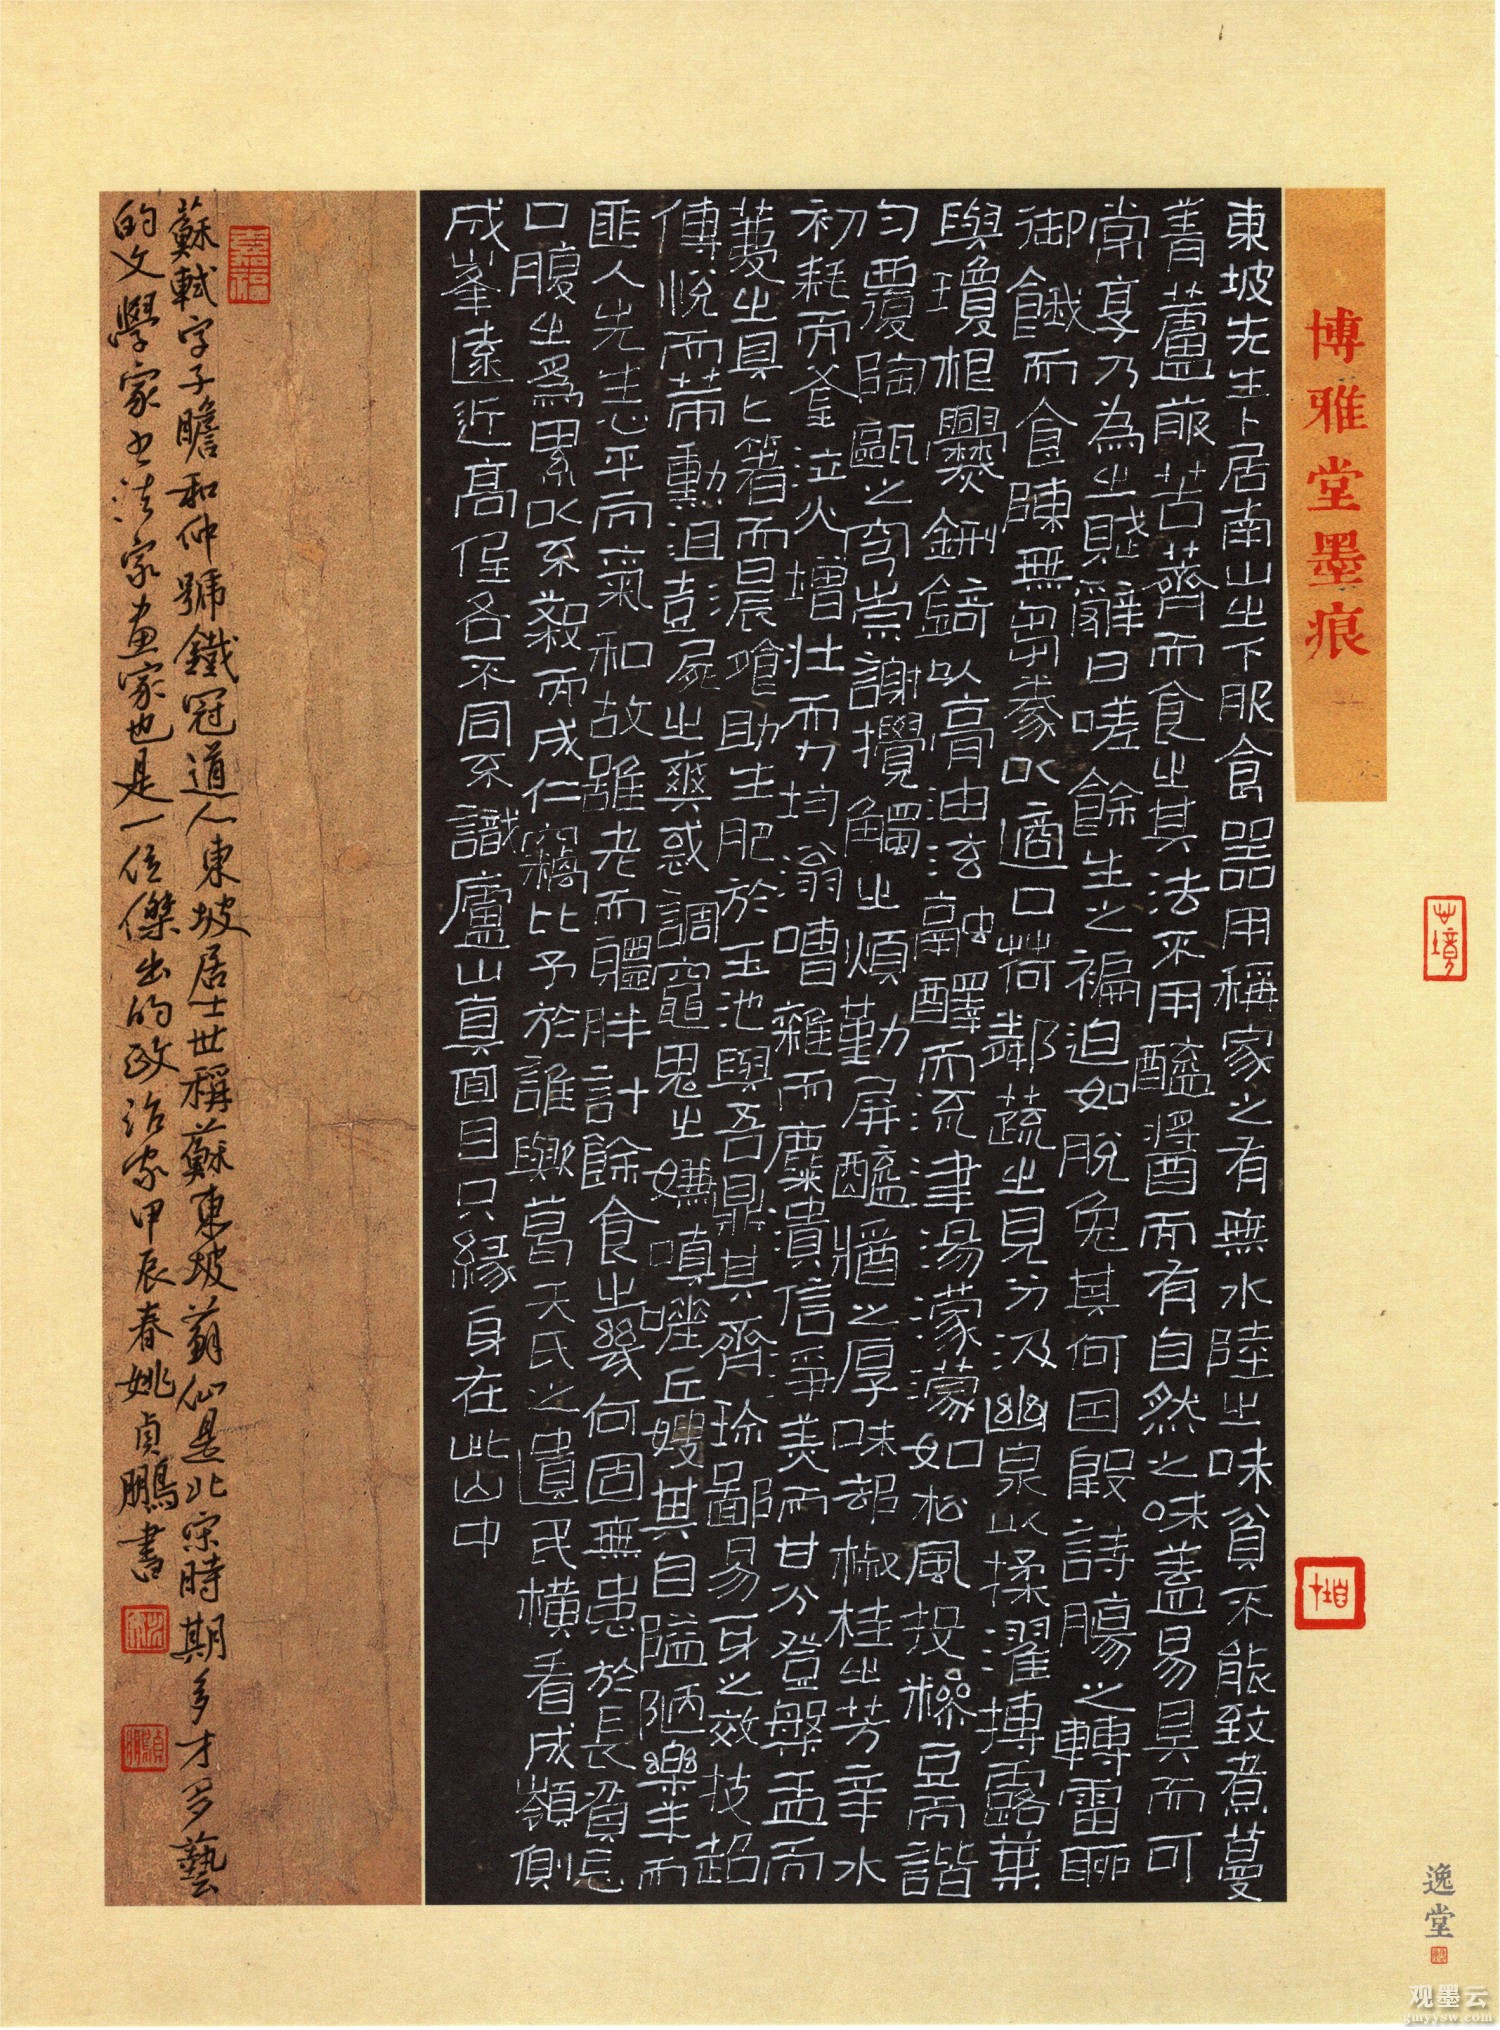 博雅堂墨痕
東坡先生卜居南山之下服食器用稱家之有無水陸之味貧不能致煮蔓
菁蘆菔苦薺而食之其法不用醯醬而有自然之味蓋易具而可
常享乃為之賦辭曰嗟餘生之褊迫如脫兔其何因殷詩腸之轉雷聊
御餓而食陳無芻豢以適口荷鄰蔬之見分汲幽泉以揉濯摶露葉
與瓊根爨鉶錡以膏油泫融醳而流津湯濛濛如松風投糝豆而諧
勻覆陶甌之穹崇謝攪觸之煩勤屏醯醬之厚味卻椒桂之芳辛水
初耗而釜泣火增壯而力均滃嘈雜而麋潰信淨美而甘分登槃盂而
薦之具匕箸而晨飧助生肥於玉池與吾鼎其齊珍鄙易牙之效技超
傅說而策勳沮彭屍之爽惑調竈鬼之嫌嗔嗟丘嫂其自隘陋樂羊而
匪人先生心平而氣和故雖老而體胖計餘食之幾何固無患於長貧忘
口腹之爲累以不殺而成仁竊比予於誰歟葛天氏之遺民橫看成嶺側
成峯遠近高低各不同不識廬山真面目只緣身在此山中
嘉福
蘇軾字子瞻和仲號鐵冠道人東坡居士世稱蘇東坡蘇仙是北宋時期多才多藝
的文學家书法家画家也是一位傑出的政治家甲辰春姚貞鵬書
逸堂
观墨云
gmyysw.com